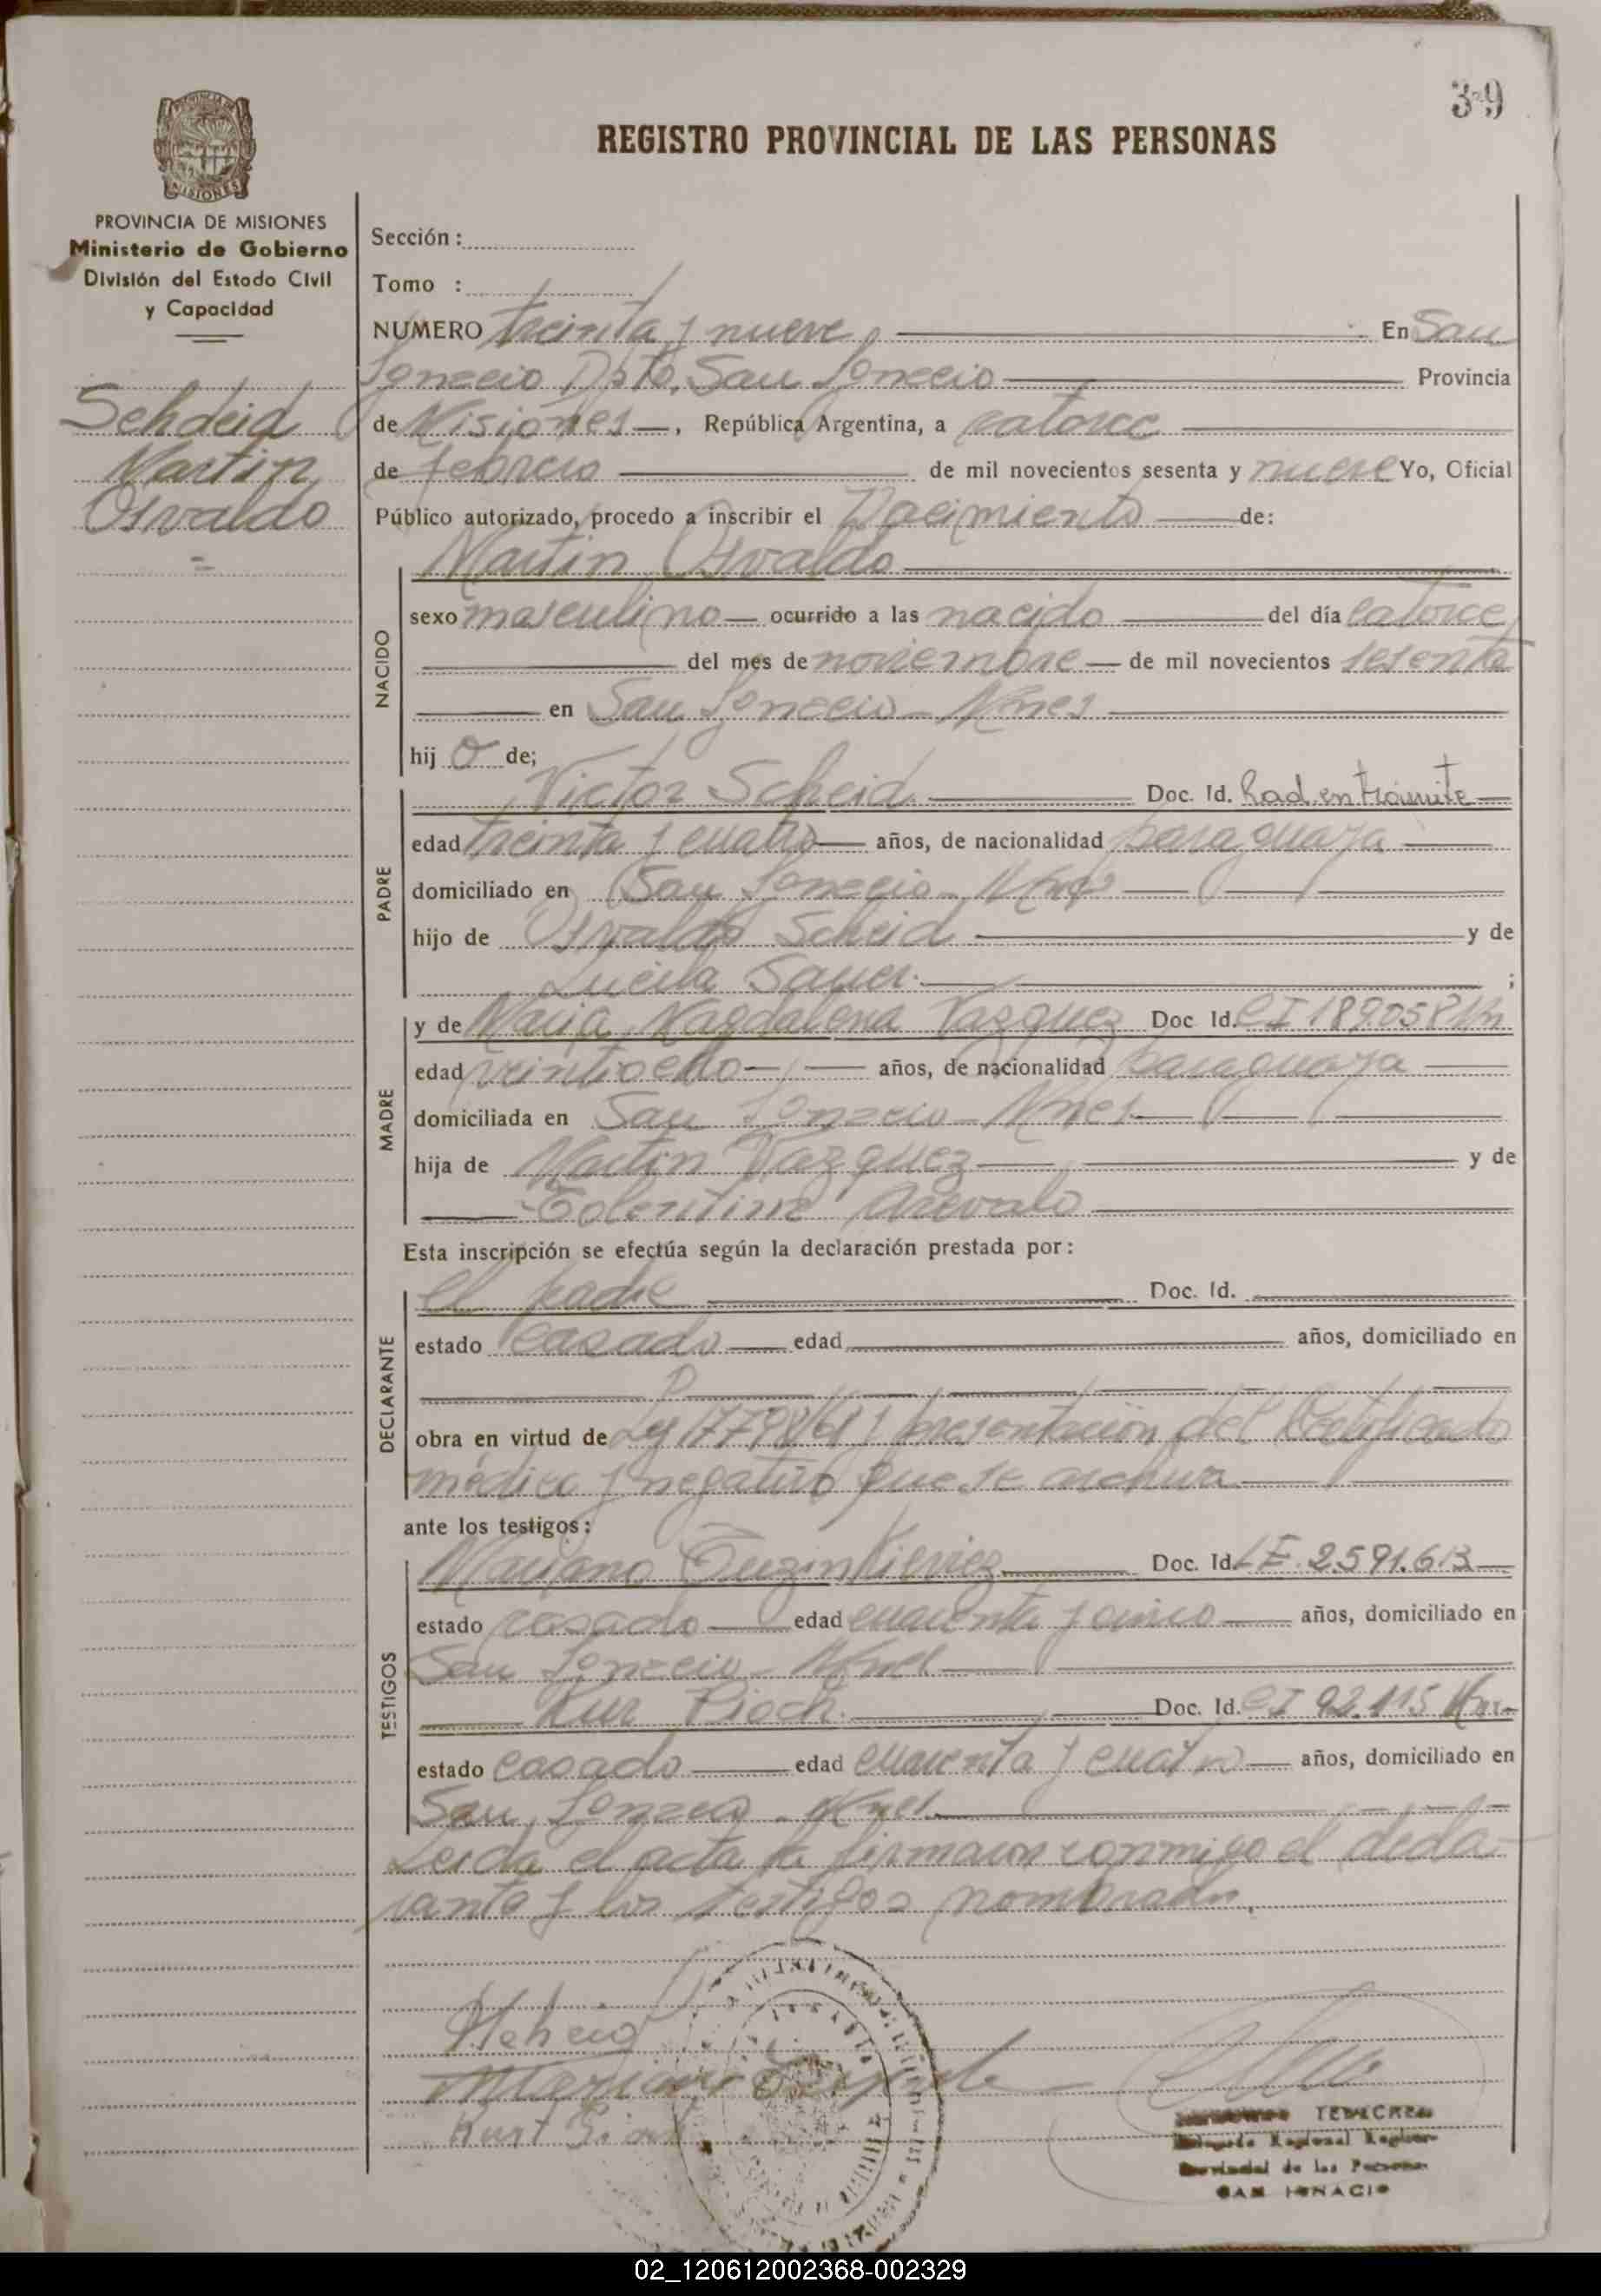 39
REGISTRO PROVINCIAL DE LAS PERSONAS
MISIONES
PROVINCIA DE MISIONES
Ministerio de Gobierno
División del Estado Civil
y Capacidad
Sehdeid
Martin
Osvaldo
Sección :
Tomo :
NUMERO treinta y nueve En San
Ignacio Dpto. San Ignacio Provincia
de Misiones, República Argentina, a catorce
de febrero de mil novecientos sesenta y nueve Yo, Oficial
Público autorizado, procedo a inscribir el Nacimiento de:
NACIDO
Martin Osvaldo
sexo masculino ocurrido a las nacido del día catorce
del mes de noviembre de mil novecientos sesenta
en San Ignacio - Mnes
hij o de;
PADRE
Victor Scheid Doc. Id. Rad. en trámite
edad treinta y cuatro años, de nacionalidad paraguaya
domiciliado en San Ignacio - Mnes
hijo de Osvaldo Scheid y de
Lucila Sauer ;
MADRE
y de Maria Magdalena Vazquez Doc Id. CI 189.058 Mn
edad veintiocho años, de nacionalidad paraguaya
domiciliada en San Ignacio - Mnes
hija de Martin Vazquez y de
Tolentina Arevalo
Esta inscripción se efectúa según la declaración prestada por:
DECLARANTE
el padre Doc. Id.
estado casado edad años, domiciliado en
obra en virtud de Ley 17798/61 y presentación del Certificado
médico y negativo que se archiva
ante los testigos:
TESTIGOS
Mariano Doc. Id. LE 2.591.613
estado casado edad cuarenta y cinco años, domiciliado en
San Ignacio - Mnes
Kur Pioch Doc. Id. CI 92.115 Mn
estado casado edad cuarenta y cuatro años, domiciliado en
San Ignacio - Mnes
Leida el acta la firmaron conmigo el decla-
rante y los testigos nombrados.
Kurt
Delegado Regional Registro
Provincial de las Personas
SAN IGNACIO
02_120612002368-002329